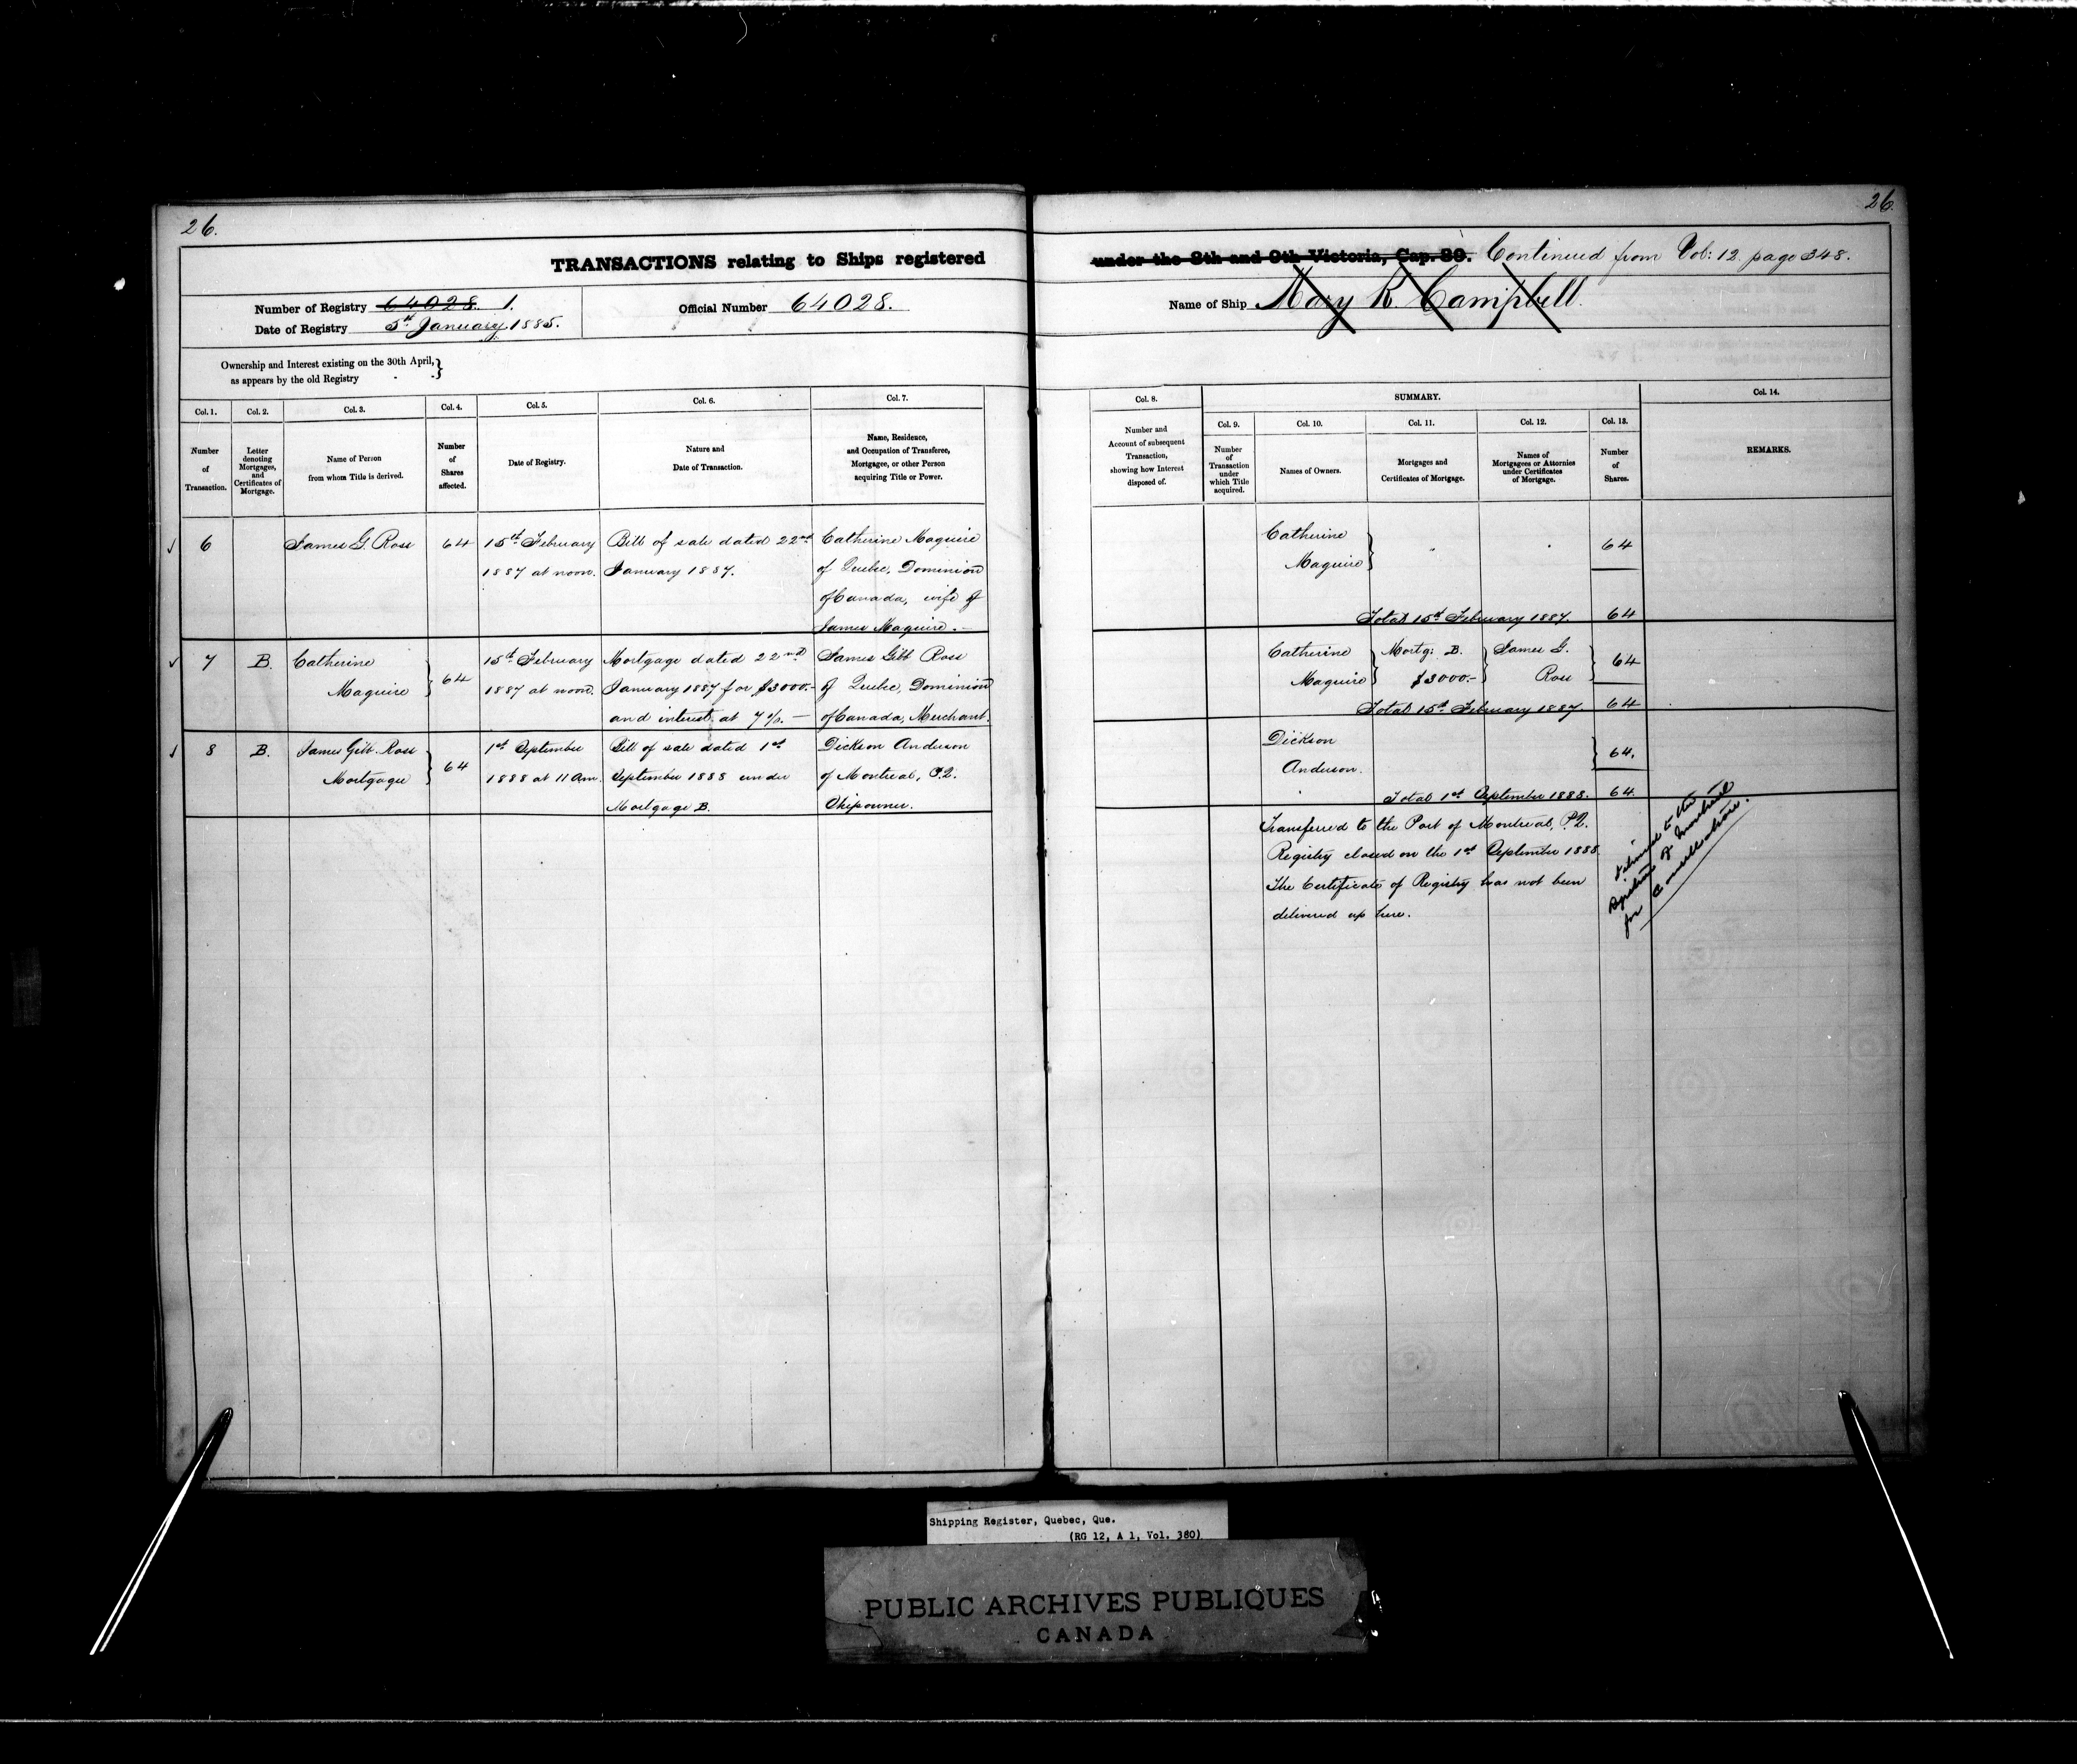 26.
26.
TRANSACTIONS relating to Ships registered under the 8th and 9th Victoria, Cap. 89. Continued from Vol: 12 page 348.
Number of Registry 64028. 1.
Date of Registry 5th January 1885.
Official Number 64028.
Name of Ship Mary R. Campbell.
Ownership and Interest existing on the 30th April,
as appears by the old Registry
Col. 1.
Number
of
Transaction.
Col. 2.
Letter
denoting
Mortgages,
and
Certificates of
Mortgage.
Col. 3.
Name of Person
from whom Title is derived.
Col. 4.
Number
of
Shares
affected.
Col. 5.
Date of Registry.
Col. 6.
Nature and
Date of Transaction.
Col. 7.
Name, Residence,
and Occupation of Transferee,
Mortgagee, or other Person
acquiring Title or Power.
Col. 8.
Number and
Account of subsequent
Transaction,
showing how Interest
disposed of.
SUMMARY.
Col. 9.
Number
of
Transaction
under
which Title
acquired.
Col. 10.
Names of Owners.
Col. 11.
Mortgages and
Certificates of Mortgage.
Col. 12.
Names of
Mortgagees or Attornies
under Certificates
of Mortgage.
Col. 13.
Number
of
Shares.
Col. 14.
REMARKS.
6
James G. Ross
64
15th February
1887 at noon.
Bill of sale dated 22nd
January 1887.
Catherine Maguire
of Quebec, Dominion
of Canada, wife of
James Maguire.
Catherine
Maguire
64
Total 15th February 1887. 64
7
B.
Catherine
Maguire
64
15th February
1887 at noon.
Mortgage dated 22nd
January 1887 for $3000.-
and interest at 7 %. —
James Gibb Ross
of Quebec, Dominion
of Canada, Merchant.
Catherine
Maguire
Mortg: B.
$3000.-
James G.
Ross
64
Total 15th February 1887. 64
8
B.
James Gibb Ross
Mortgagee
64
1st September
1888 at 11 am.
Bill of sale dated 1st
September 1888 under
Mortgage B.
Dickson Anderson
of Montreal, P.Q.
Shipowner.
Dickson
Anderson.
64.
Total 1st September 1888. 64.
Transferred to the Port of Montreal, P.Q.
Registry closed on the 1st September 1888.
The Certificate of Registry has not been
delivered up here.
to the
of Montreal
for Cancellation.
Shipping Register, Quebec, Que.
(RG 12, A 1, Vol. 380)
PUBLIC ARCHIVES PUBLIQUES
CANADA